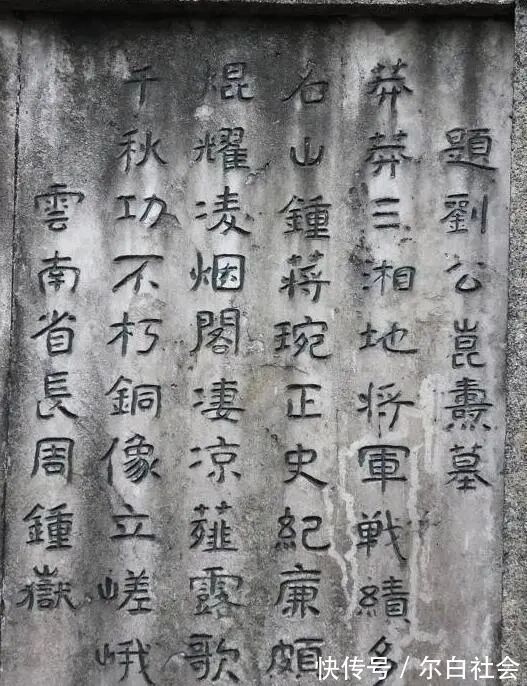 題劉公崑燾墓
莽莽三湘地将軍戦績多
名山鍾蔣琬正史紀廉頗
焜耀凌烟閣凄凉薤露歌
千秋功不朽銅像立嵯峨
雲南省長周鍾嶽
快传号 / 尔白社会